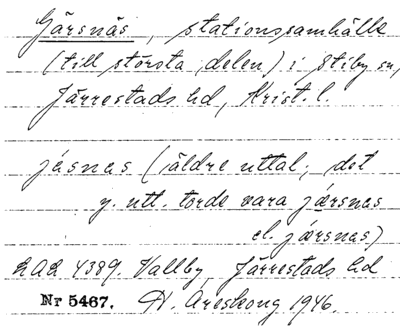 Gärsnäs, stationssamhälle
(till största delen) i Stiby sn,
Järrestads hd, Krist. l.
jásnas (äldre uttal; det
y. utt. torde vara jǽrsnas
el. jærsnas)
LAL 4389. Vallby, Järrestads hd
Nr 5467. H. Areskoug 1946.